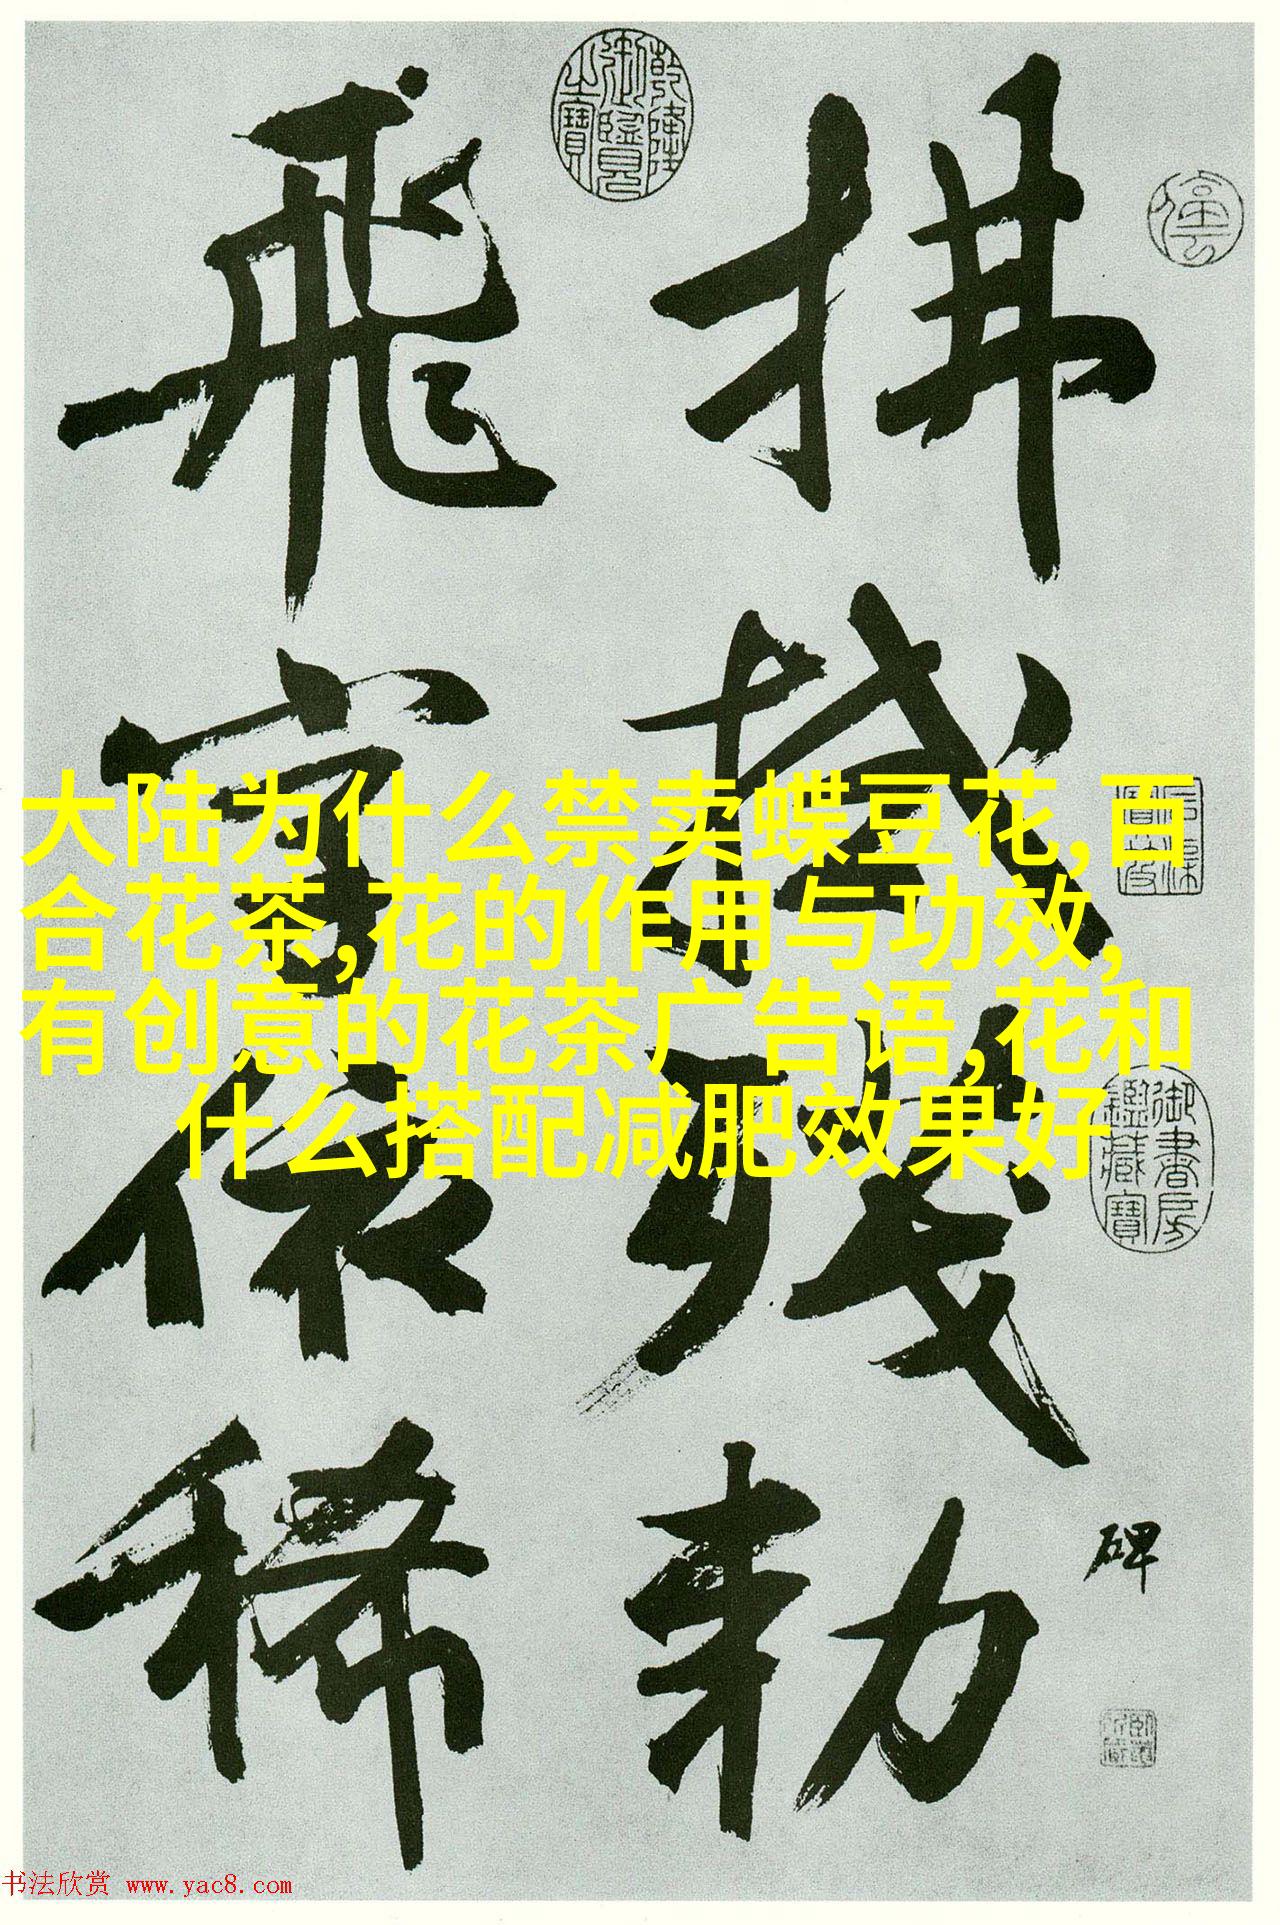 乾隆御覽之寶
拂拭残勅
碑
飛字依稀
御書房鑑藏寶
大陆为什么禁卖蝶豆花,百
合花茶,花的作用与功效,
有创意的花茶广告语,花和
什么搭配减肥效果好
书法欣赏 www.yac8.com